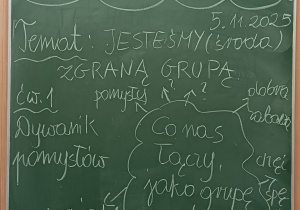 5.11.2025
Temat: JESTEŚMY (środa)
ZGRANĄ GRUPĄ.
pomysły ? ?
dobra
zabawa
ćw. 1
Dywanik
pomysłów
Co nas
łączy,
jako grupę
chęć